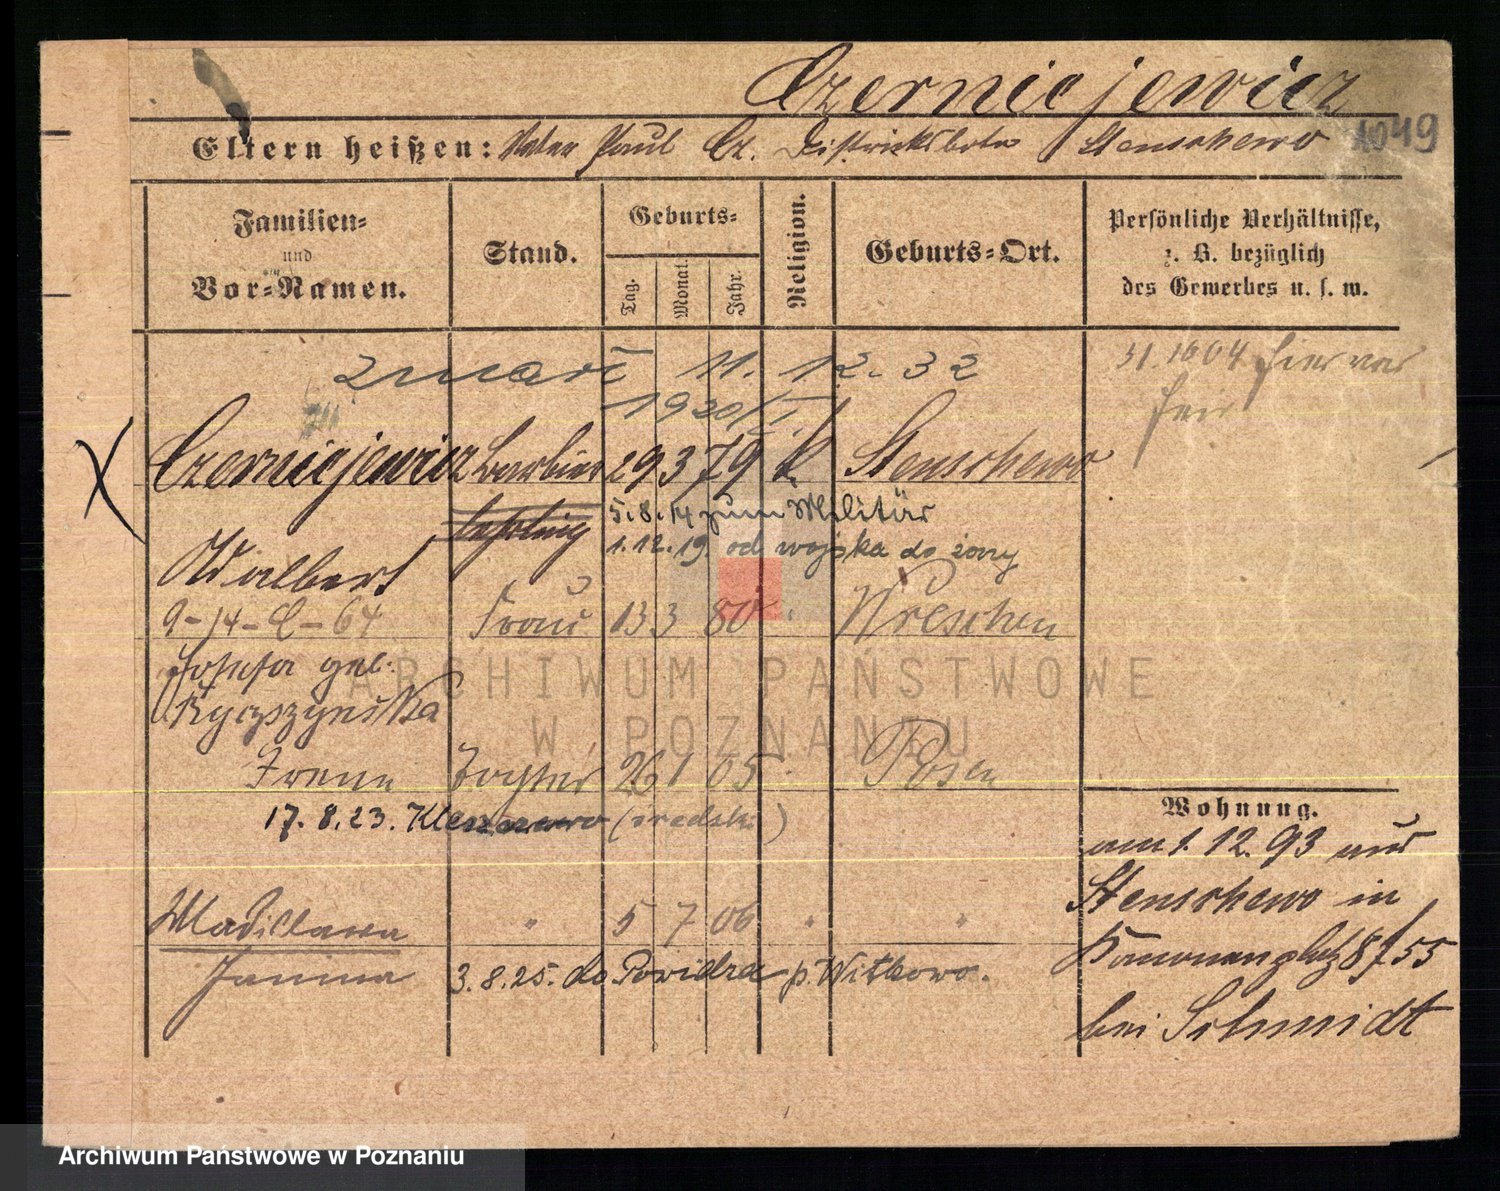 Czerniejewicz
Eltern heißen: Vater Paul Cz. Distriktsbote Stenschewo 1049
Familien-
und
Vor-Namen.
Stand.
Geburts-
Tag.
Monat.
Jahr.
Religion.
Geburts-Ort.
Persönliche Verhältnisse,
z. B. bezüglich
des Gewerbes u. s. w.
zmarł 11. 12. 32
1920/I.
Czerniejewicz Barbier 29 3 79 k. Stenschewo
lehrling 5.8.14 zum Militär
1.12.19. od wojska do żony
Adalbert
9-14-C-64 Frau 13 3 80 Wreschen
Josefa geb.
Irene Tochter 26 1 05 Posen
17.8.23. (średzki)
Wladislawa " 5 7 06 " "
Janina 3.8.25. do Powidza p. Witkowo.
Wohnung.
am 1. 12. 93 aus
Stenschewo in
Kanonenplatz 8/55
bei Schmidt
ARCHIWUM PAŃSTWOWE
W POZNANIU
Archiwum Państwowe w Poznaniu